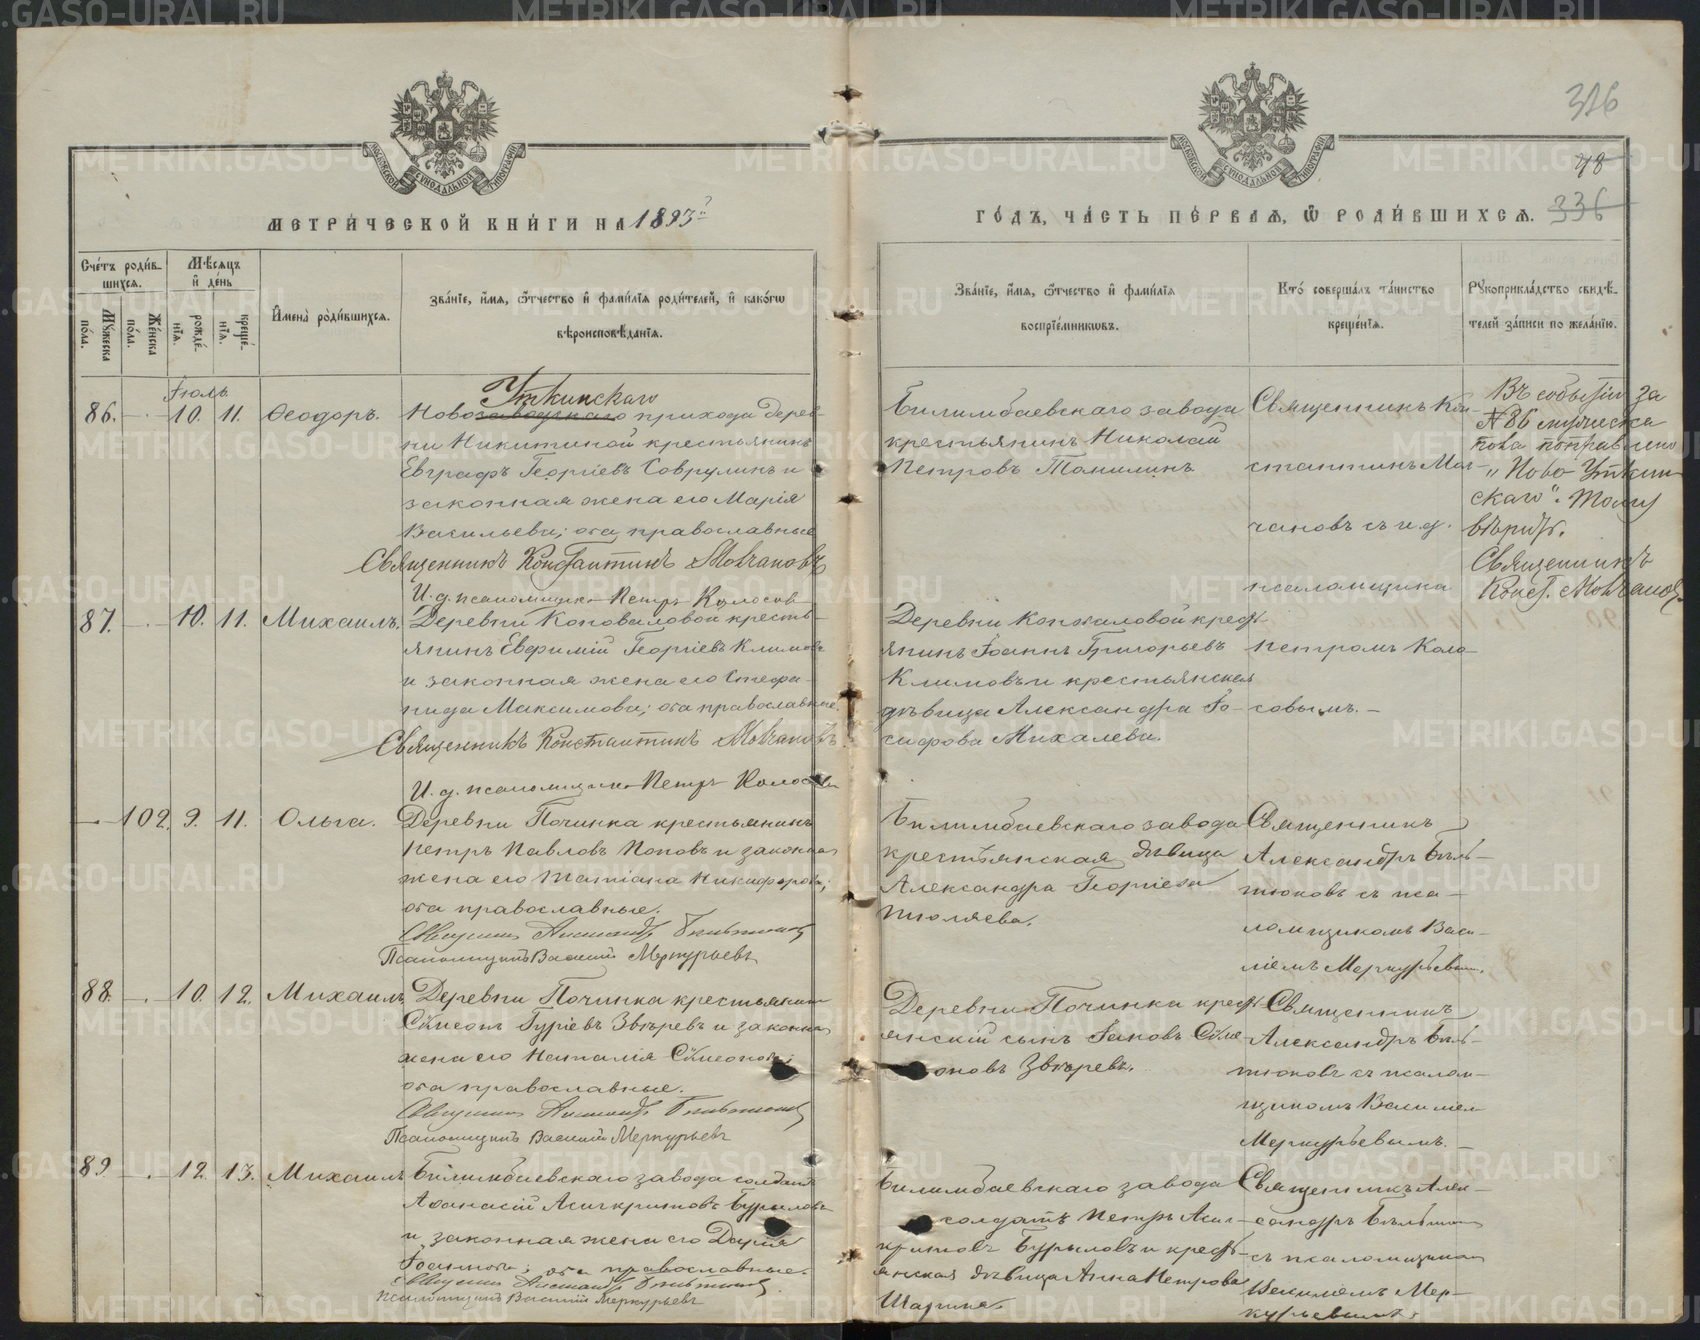 316
78
336
МЕТРИ́ЧЕСКОЙ КНИ́ГИ НА 1893й
ГО́ДЪ, ЧА́СТЬ ПЕ́РВАѦ, Ѿ РОДИ́ВШИХСѦ.
Сче́тъ роди́в-
шихсѧ.
Му́жеска по́ла.
Же́нска по́ла.
Мѣ́сѧцъ и҆ де́нь
рожде́-нїѧ.
креще́-нїѧ.
И҆мена̀ роди́вшихсѧ.
Зва́нїе, и҆́мѧ, ѻ҆́тчество и҆ фами́лїѧ роди́телей, и҆ како́гѡ
вѣроисповѣ́данїѧ.
Зва́нїе, и҆́мѧ, ѻ҆́тчество и҆ фами́лїѧ
воспрїе́мникѡвъ.
Кто̀ соверша́лъ та́инство
креще́нїѧ.
Рꙋкоприкла́дство свидѣ́-
телей за́писи по жела́нїю.
Іюль
86. — 10. 11. Ѳеодоръ.
Уткинскаго
Новозаводскаго прихода Дерев-
ни Никитиной крестьянинъ
Евграфъ Георгіевъ Соврулинъ и
законная жена его Марія
Васильева; оба православные
Священникъ Константинъ Молчановъ
И. д. псаломщика Петръ Колосовъ
Билимбаевскаго завода
крестьянинъ Николай
Петровъ Томилинъ
Священникъ Кон-
стантинъ Мол-
чановъ съ и. д.
псаломщика
Петромъ Коло-
совымъ. —
Въ событіи за
№ 86 мужеска
пола поправлено
„Ново-Уткин-
скаго". Тому
вѣрить.
Священникъ
Конст. Молчановъ
87. — 10. 11. Михаилъ.
Деревни Коноваловой кресть-
янинъ Евфимій Георгіевъ Климовъ
и законная жена его Стефа-
нида Максимова; оба православные.
Священникъ Константинъ Молчановъ
И. д. псаломщика Петръ Колосовъ
Деревни Коноваловой крест-
янинъ Іоаннъ Григорьевъ
Климовъ и крестьянская
дѣвица Александра Іо-
сифова Михалева.
— 102. 9. 11. Ольга.
Деревни Починка крестьянинъ
Петръ Павловъ Поповъ и законная
жена его Татіана Никифорова;
оба православные.
Священникъ Александръ Бѣльтюковъ
Псаломщикъ Василій Меркурьевъ
Билимбаевскаго завода
крестьянская дѣвица
Александра Георгіева
Тюляева.
Священникъ
Александръ Бѣль-
тюковъ съ пса-
ломщикомъ Васи-
ліемъ Меркурьевым.
88. — 10. 12. Михаилъ
Деревни Починка крестьянин
Сѵмеонъ Гуріевъ Звѣревъ и законная
жена его Наталія Сѵмеонова;
оба православные.
Священникъ Александръ Бѣльтюковъ
Псаломщикъ Василій Меркурьевъ
Деревни Починка крест-
янскій сынъ Іаковъ Сѵме-
оновъ Звѣревъ.
Священникъ
Александръ Бѣль-
тюковъ съ псалом-
щикомъ Василіем
Меркурьевымъ. —
89 — 12. 13. Михаилъ
Билимбаевскаго завода солдатъ
Аѳанасій Асигкритовъ Бурыловъ
и законная жена его Дарія
Іоаннова; оба православные.
Священникъ Александръ Бѣльтюковъ
Псаломщикъ Василій Меркурьевъ
Билимбаевскаго завода
солдатъ Петръ Асиг-
критовъ Бурыловъ и крест-
янская дѣвица Анна Петрова
Священникъ Алек-
сандръ Бѣльтюков
съ псаломщиком
Василіемъ Мер-
курьевымъ.